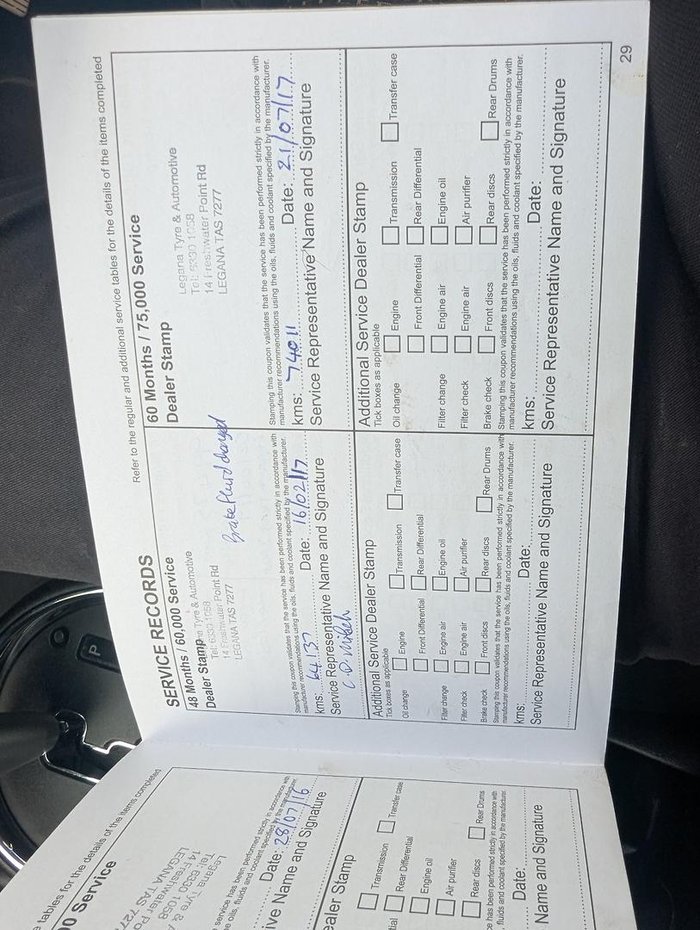 Refer to the regular and additional service tables for the details of the items completed
SERVICE RECORDS
48 Months / 60,000 Service
Dealer Stamp
Tyre & Automotive
Tel: 6330 1058
14 Freshwater Point Rd
LEGANA TAS 7277
Brake fluid changed
Stamping this coupon validates that the service has been performed strictly in accordance with
manufacturer recommendations using the oils, fluids and coolant specified by the manufacturer.
kms: 64137 Date: 16/02/17
Service Representative Name and Signature
Additional Service Dealer Stamp
Tick boxes as applicable
Oil change Engine Transmission Transfer case
Front Differential Rear Differential
Filter change Engine air Engine oil
Filter check Engine air Air purifier
Brake check Front discs Rear discs Rear Drums
Stamping this coupon validates that the service has been performed strictly in accordance with
manufacturer recommendations using the oils, fluids and coolant specified by the manufacturer.
kms: Date:
Service Representative Name and Signature
60 Months / 75,000 Service
Dealer Stamp
Legana Tyre & Automotive
Tel: 6330 1058
14 Freshwater Point Rd
LEGANA TAS 7277
Stamping this coupon validates that the service has been performed strictly in accordance with
manufacturer recommendations using the oils, fluids and coolant specified by the manufacturer.
kms: 74011 Date: 21/07/17
Service Representative Name and Signature
Additional Service Dealer Stamp
Tick boxes as applicable
Oil change Engine Transmission Transfer case
Front Differential Rear Differential
Filter change Engine air Engine oil
Filter check Engine air Air purifier
Brake check Front discs Rear discs Rear Drums
Stamping this coupon validates that the service has been performed strictly in accordance with
manufacturer recommendations using the oils, fluids and coolant specified by the manufacturer.
kms: Date:
Service Representative Name and Signature
29
tables for the details of the items completed
0 Service
Legana Tyre &
Tel: 6330 1058
14 Freshwater
LEGANA TAS
service has been performed strictly in accordance with
oils, fluids and coolant specified by the manufacturer.
Date: 28/07/16
Name and Signature
Dealer Stamp
Transmission Transfer case
Rear Differential
Engine oil
Air purifier
Rear discs Rear Drums
has been performed strictly in accordance with
fluids and coolant specified by the manufacturer.
Date:
Name and Signature
P